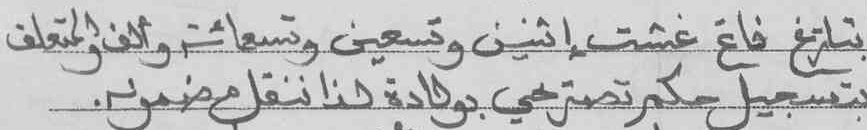 بتاريخ فاتح غشت إثنين وتسعين وتسعمائة وألف والمتعلق
بتسجيل حكم تصريحي بولادة لذا ننقل مضمونه.